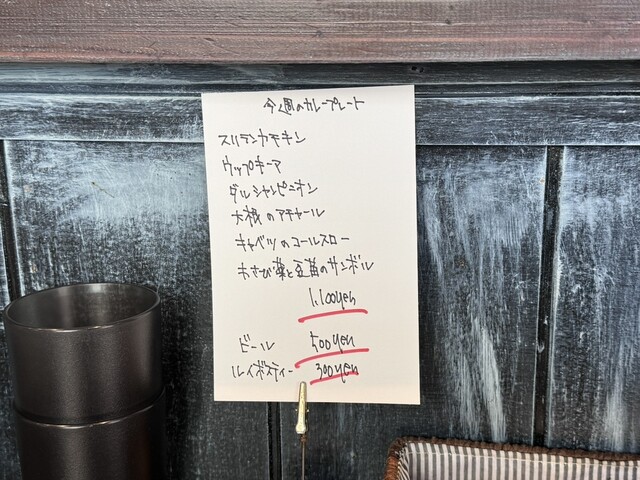 今週のカレープレート
スリランカチキン
ウップキーマ
ダルシャンピニオン
大根のアチャール
キャベツのコールスロー
わさび菜と豆苗のサンボル
1,100yen
ビール 500yen
ルイボスティー 300yen